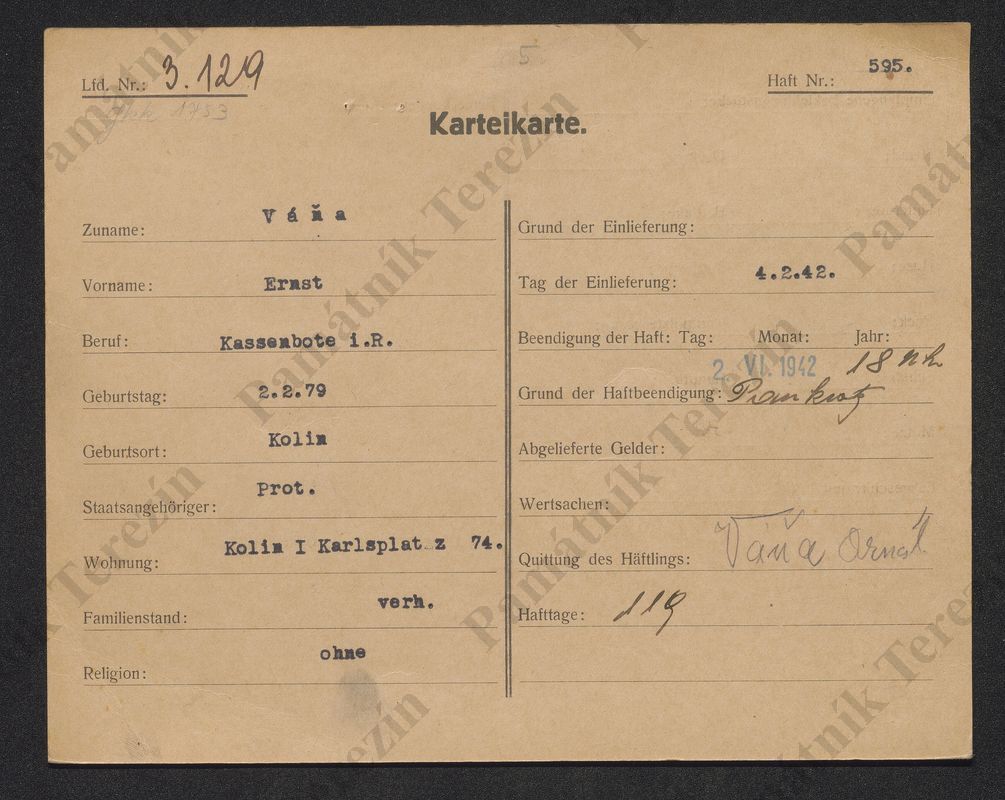 5
Lfd. Nr.: 3.129
Haft Nr.: 595.
1753
Karteikarte.
Zuname: Váňa
Vorname: Ernst
Beruf: Kassenbote i.R.
Geburtstag: 2.2.79
Geburtsort: Kolin
Staatsangehöriger: Prot.
Wohnung: Kolin I Karlsplatz 74.
Familienstand: verh.
Religion: ohne
Grund der Einlieferung:
Tag der Einlieferung: 4.2.42.
Beendigung der Haft: Tag: Monat: Jahr:
2. VI. 1942 18 Uh
Grund der Haftbeendigung: Pankratz
Abgelieferte Gelder:
Wertsachen:
Quittung des Häftlings: Váňa Ernst
Hafttage: 119
Památník Terezín
Památník Terezín
Památník Terezín
Památník Terezín